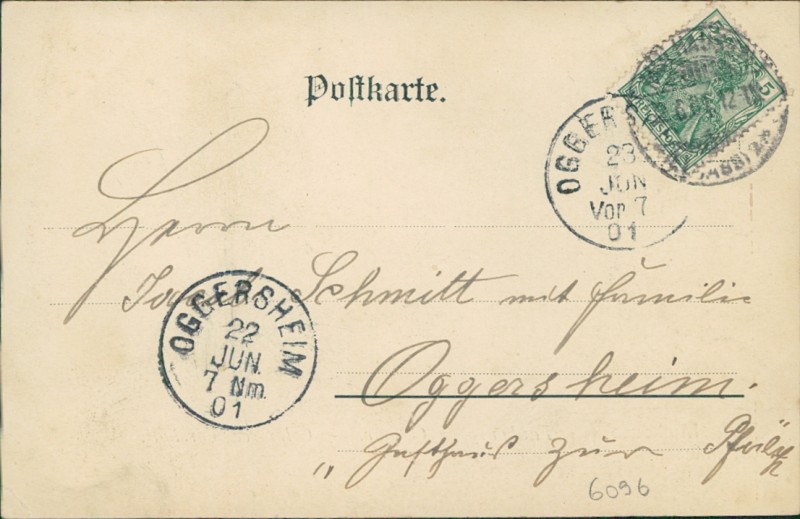 Postkarte.
5
OGGERS
23
JUN
Vor 7
01
Herrn
Jacob Schmitt mit Familie
OGGERSHEIM
22
JUN.
7 Nm.
01
Oggersheim.
„ Gasthaus zur Pfalz
6096